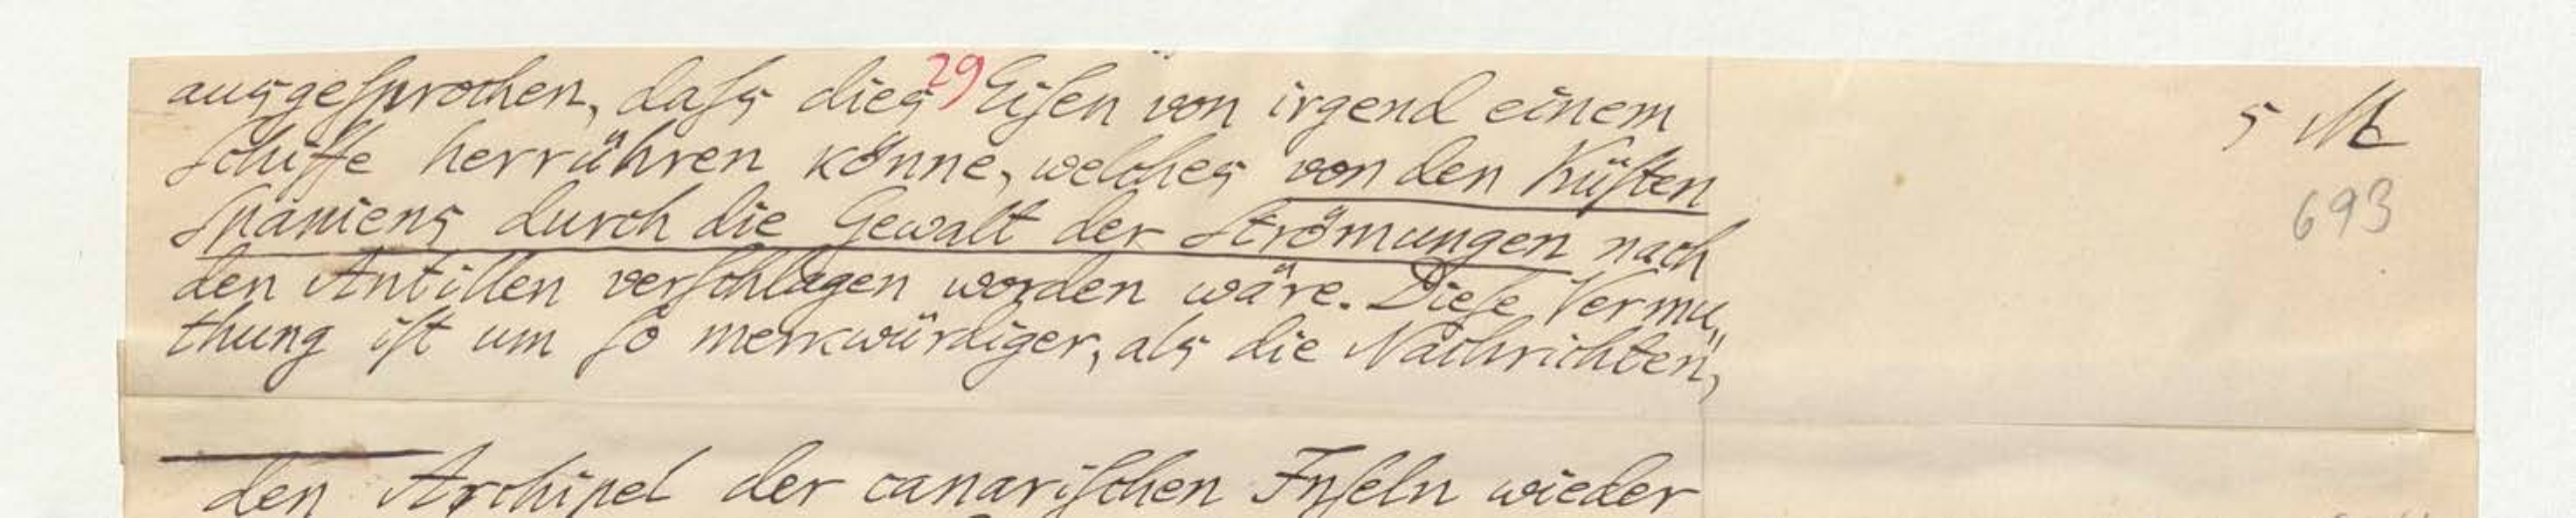 ausgesprochen, dass dies 29) Eisen von irgend einem
5 M
Schiffe herrühren könne, welches von den Küsten
693
Spaniens durch die Gewalt der Strömungen nach
den Antillen verschlagen worden wäre. Diese Vermu„
thung ist um so merkwürdiger, als die Nachrichten,
den Archipel der canarischen Inseln wieder